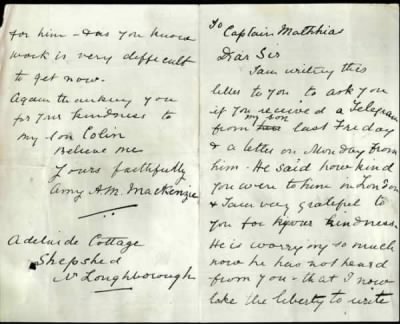 To Captain Matthias
Dear Sir
I am writing this
letter to you to ask you
if you received a Telegram
from my son last Friday
& a letter on Monday from
him - He said how kind
you were to him in London
& I am very grateful to
you for your kindness.
He is worrying so much
now he has not heard
from you - that I now
take the liberty to write
for him - & as you know
work is very difficult
to get now.
Again thanking you
for your kindness to
my son Colin
Believe me
Yours faithfully
Amy A.M. MacKenzie
Adelaide Cottage
Shepshed
Nr Loughborough